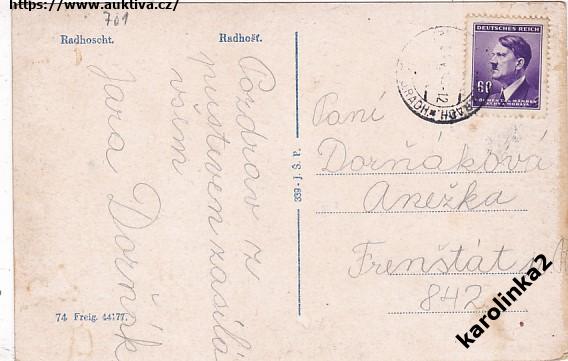 https://www.auktiva.cz/
701
Radhoscht. Radhošť.
Pozdrav z
pusteven zasílá
vším
Jara Dorňák
339 - J. S. P.
74 Freig. 44177.
DEUTSCHES REICH
60
BÖHMEN u. MÄHREN
ČECHY a MORAVA
RADH.
Paní
Dorňáková
Anežka
Frenštát
842
karolinka2